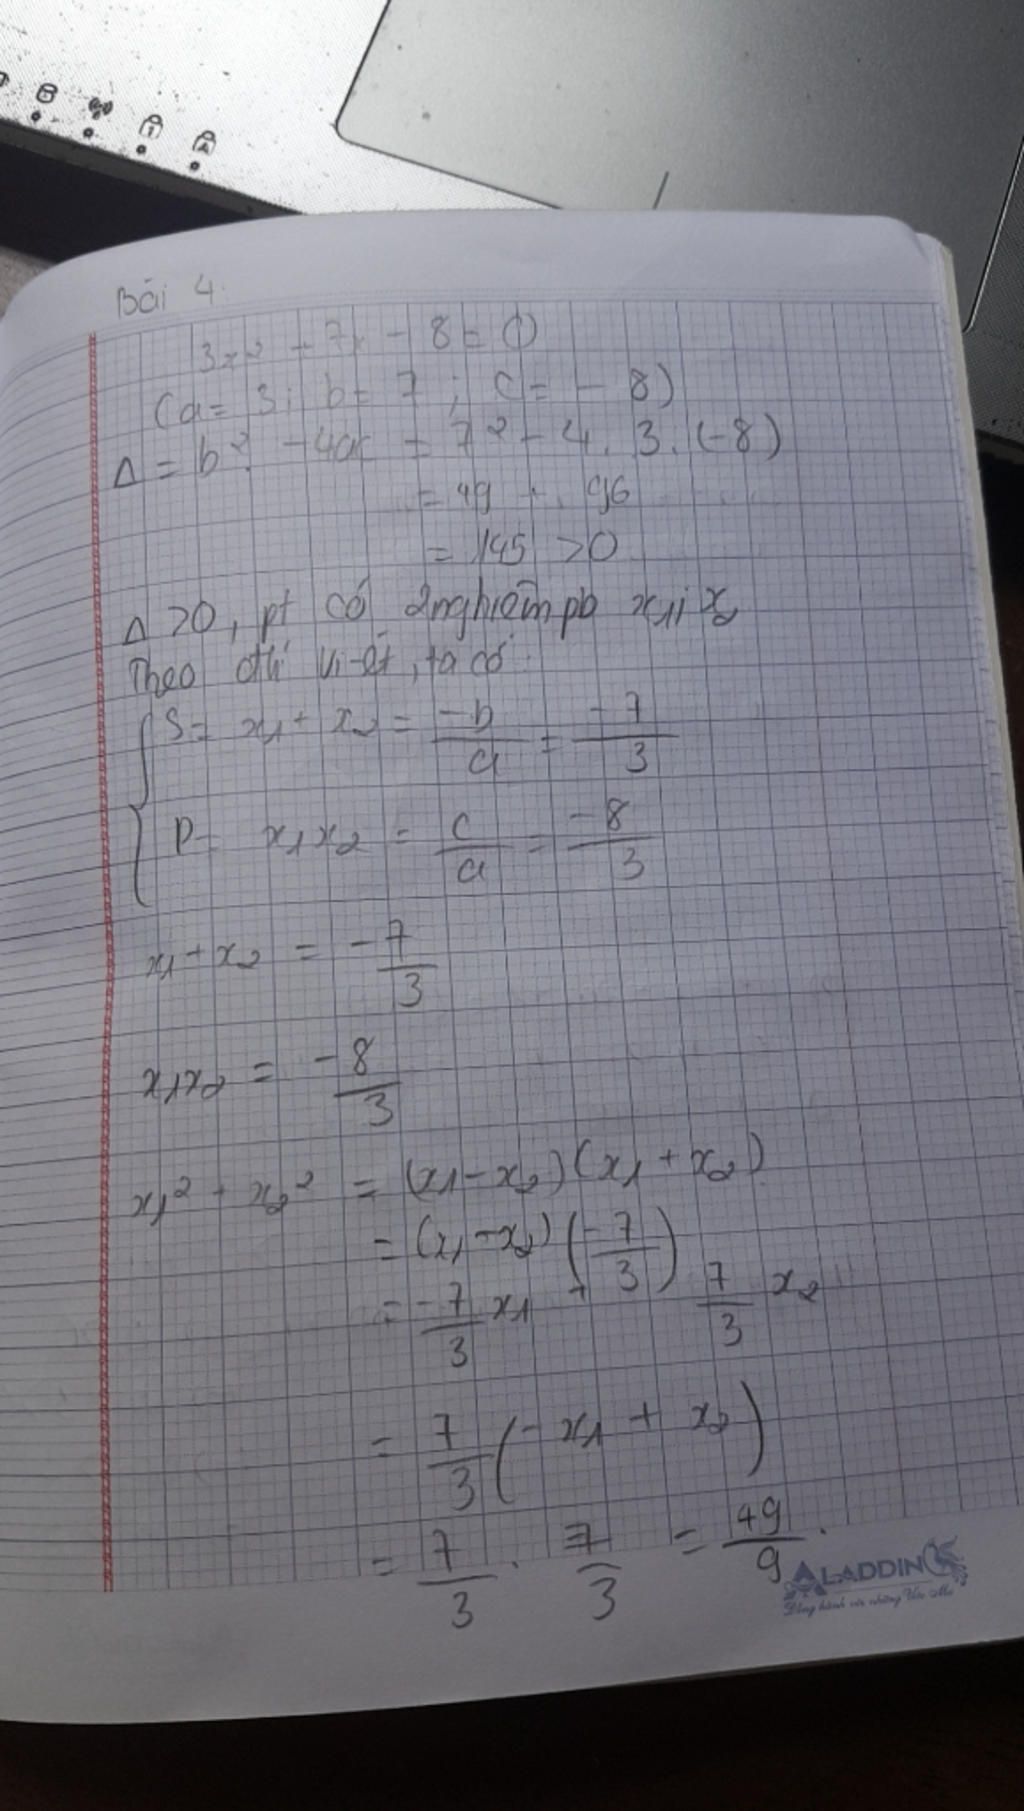 Bài 4.
3x² + 7x - 8 = 0
(a = 3; b = 7; c = - 8)
Δ = b² - 4ac = 7² - 4. 3. (-8)
= 49 + 96
= 145 > 0
Δ > 0, pt có 2 nghiệm pb x₁; x₂
Theo đlí Vi-ét, ta có
S = x₁ + x₂ = -b/a = -7/3
P = x₁x₂ = c/a = -8/3
x₁ + x₂ = -7/3
x₁x₂ = -8/3
x₁² + x₂² = (x₁ - x₂)(x₁ + x₂)
= (x₁ - x₂)(-7/3)
= -7/3 x₁ + 7/3 x₂
= 7/3 (-x₁ + x₂)
= 7/3 . 7/3 = 49/9.
ALADDIN